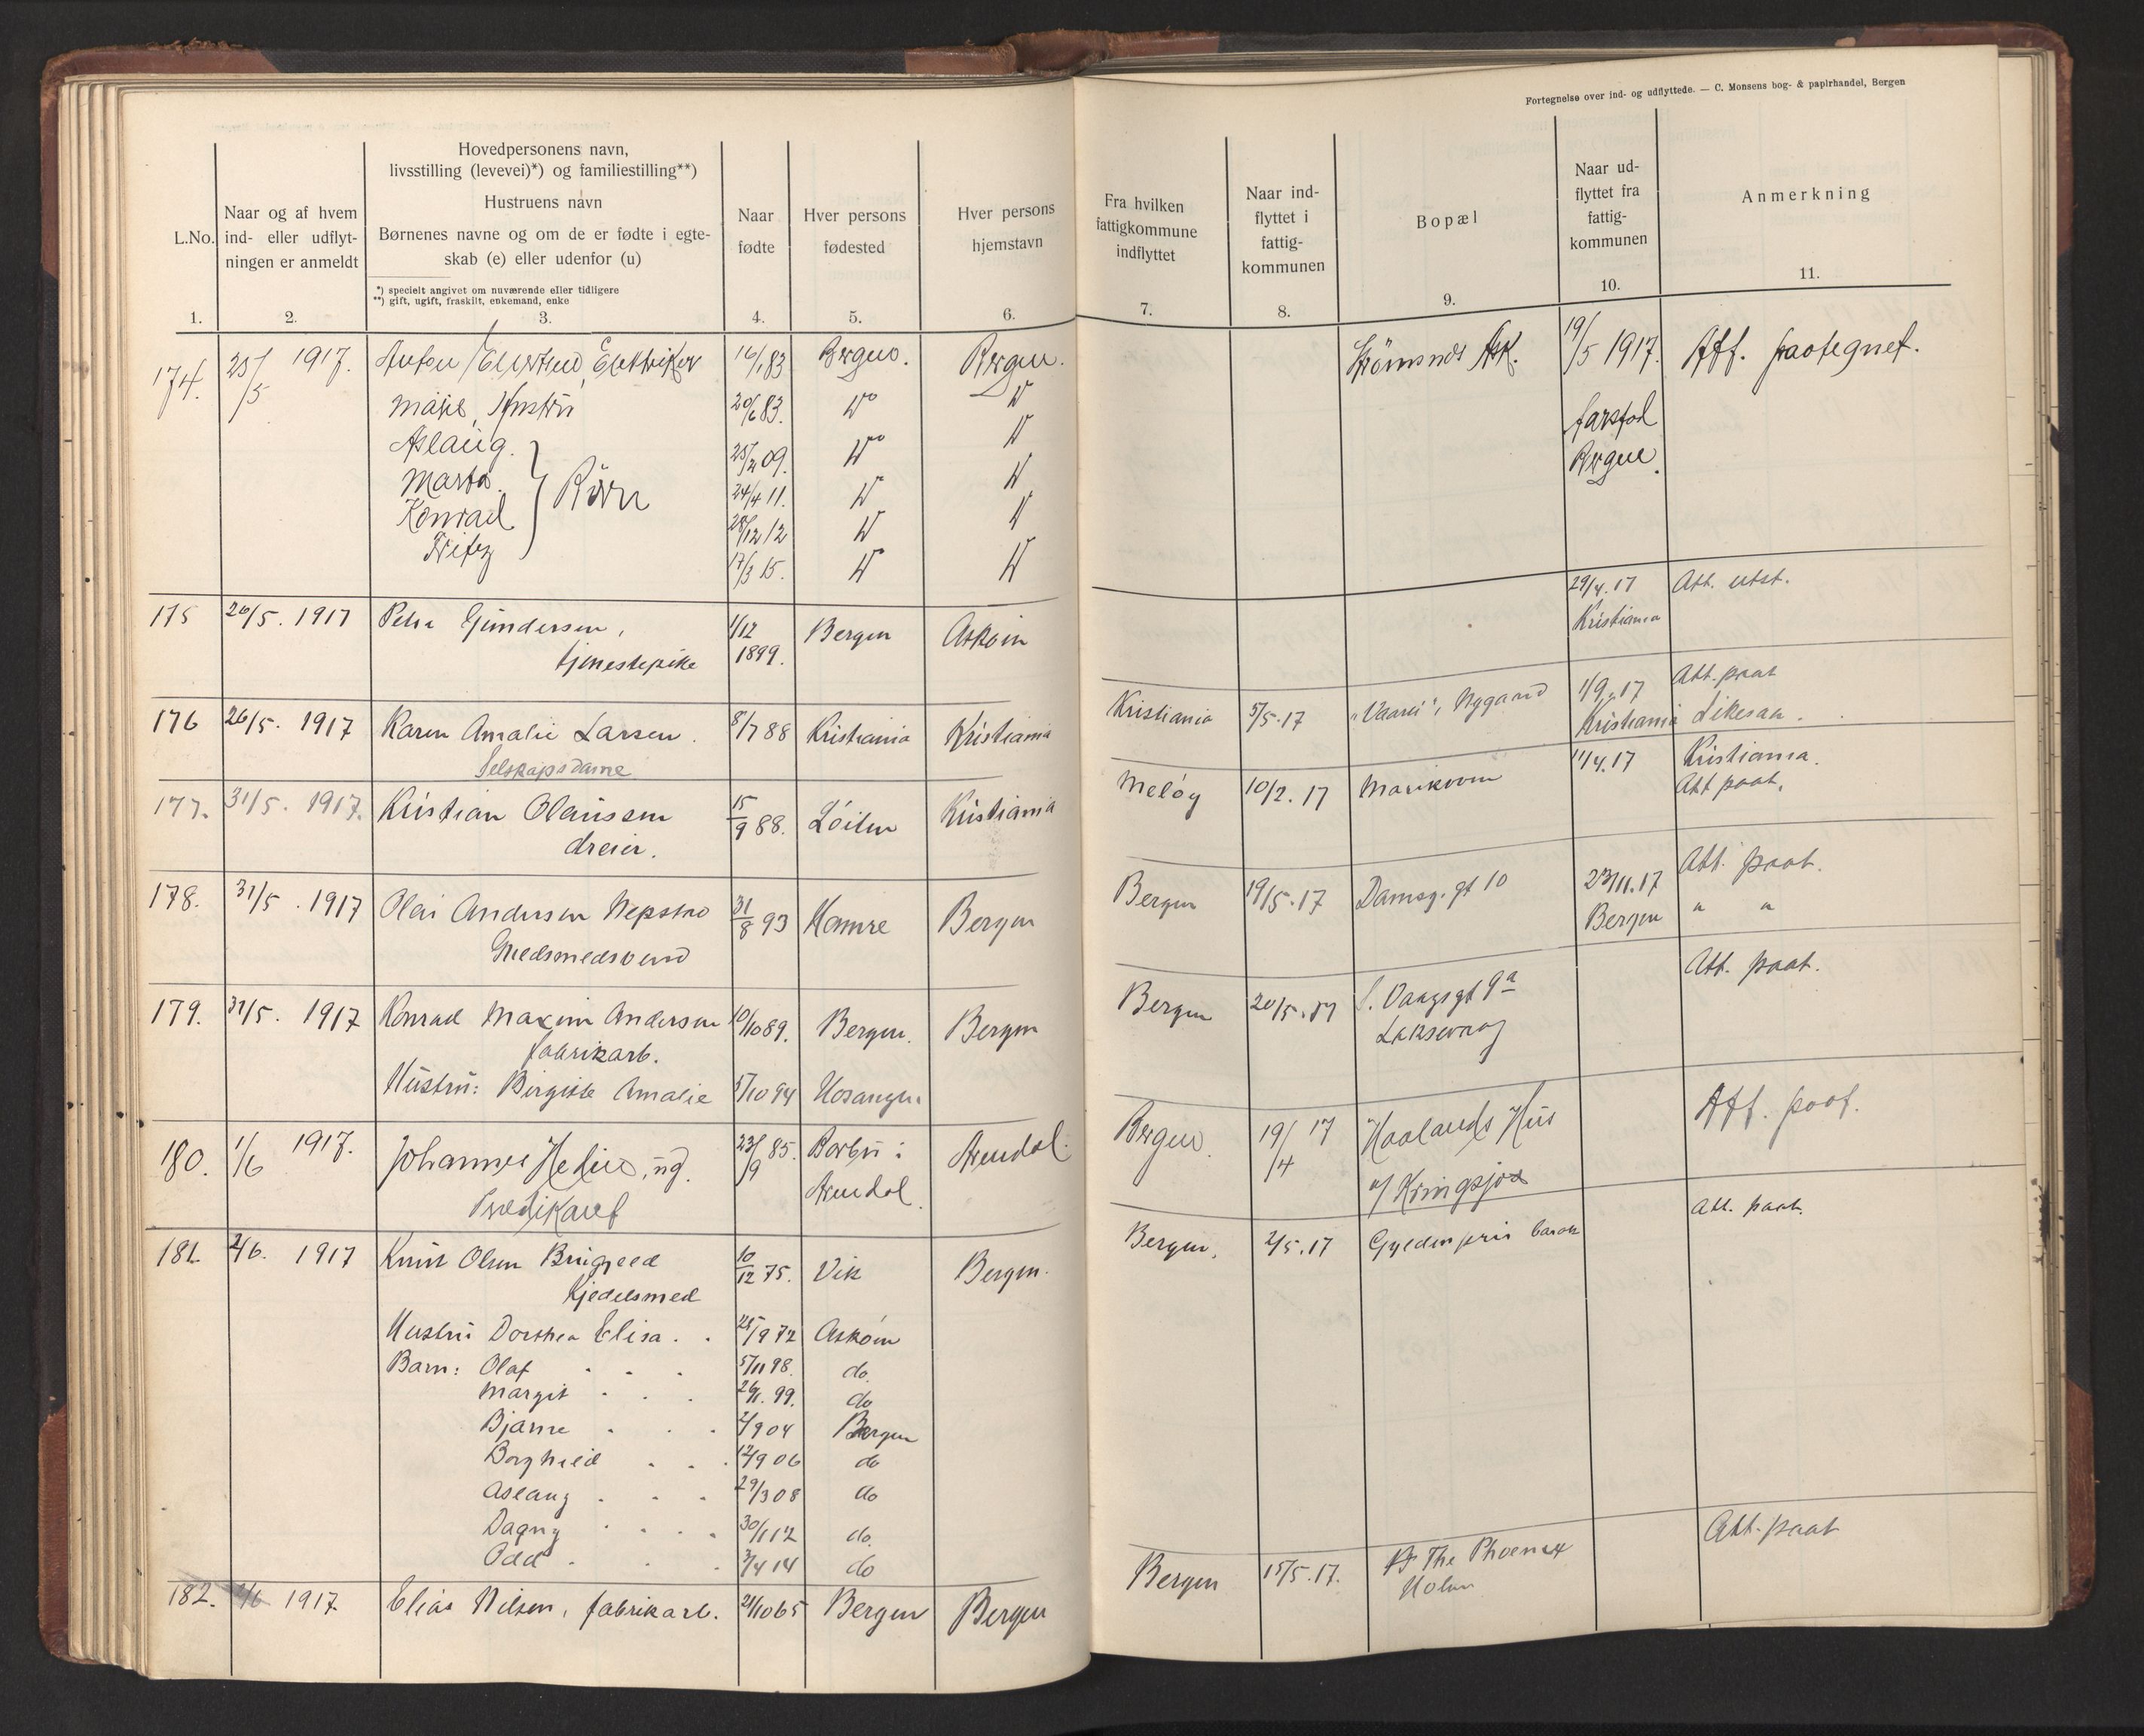 Fortegnelse over ind- og udflyttede. — C. Monsens bog- & papirhandel, Bergen
L.No.
1.
Naar og af hvem
ind- eller udflyt-
ningen er anmeldt
2.
Hovedpersonens navn,
livsstilling (levevei)*) og familiestilling**)
Hustruens navn
Børnenes navne og om de er fødte i egte-
skab (e) eller udenfor (u)
*) specielt angivet om nuværende eller tidligere
**) gift, ugift, fraskilt, enkemand, enke
3.
Naar
fødte
4.
Hver persons
fødested
5.
Hver persons
hjemstavn
6.
Fra hvilken
fattigkommune
indflyttet
7.
Naar ind-
flyttet i
fattig-
kommunen
8.
Bopæl
9.
Naar ud-
flyttet fra
fattig-
kommunen
10.
Anmerkning
11.
174. 25/5 1917. Anton Elektriker 83 Bergen. Bergen. Ask. 19/5 1917. Att. paategnet.
Hustru 20/6 83.
Bergen.
Aslaug. 25/2 09.
Marta. 24/4 11.
Børn
Konrad 28/12 12
17/3 15.
175 26/5. 1917 Petra Gundersen, 1/12 Bergen Askøin 29/4.17 Att. utst.
tjenestepike 1899. Kristiania
176 26/5. 1917 Karen Amalie Larsen. 8/7 88 Kristiania Kristiania Kristiania 5/5.17 Nygaard 1/9.17 Att. paat
Selskapsdame Kristiania
177. 31/5. 1917. Kristian Olaussen 15/9 88. Løiten Kristiania Meløy 10/2. 17 11/4.17 Kristiania.
dreier. Att paat.
178. 31/5. 1917 Olai Andersen Nepstad 31/8 93 Hamre Bergen Bergen 19/5.17 Damsg. gt 10 23/11.17 Att. paat.
Bergen " "
179. 31/5. 1917 Konrad Maxim Andersen 10/10 89. Bergen. Bergen Bergen 20/5.17 9a Att. paat.
fabrikarb. Laksevaag
Hustru: Birgitte Amalie 5/10 94 Hosanger
180. 1/6 1917. Johannes ug. 23/9 85. Barbu i Arendal. Bergen. 19/4 17 Haalands Hus Att. paat.
Arendal.
181. 2/6. 1917 Knut Olsen 10/12 75. Vik Bergen. Bergen. 2/5.17 Gyldenpris barak Att. paat.
Kjedelsmed
Hustru Dorthea Elisa. 25/9 72 Askøin
Barn: Olaf 5/11 98. do.
Margit 99. do
Bjarne 2/9 04 Bergen
Borghild 12/9 06 do
Aslaug 29/3 08 do
Dagny 30/1 12 do.
Odd 3/4 14 do
182. 2/6 1917 Elias Nilsen, fabrikarb. 21/10 65 Bergen Bergen Bergen 15/5.17. The Phoenix Att. paat
Holen